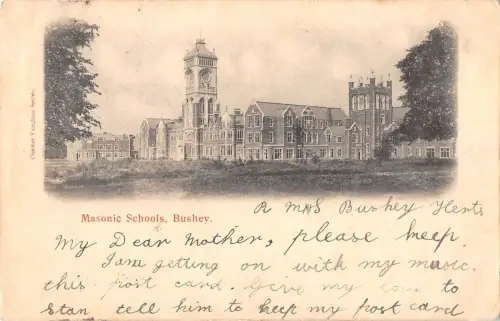 Chester Vaughan Series.
Masonic Schools, Bushey.
R M I S Bushey Herts
My Dear Mother, please keep
I am getting on with my music.
this post card. Give my love to
Stan tell him to keep my post card